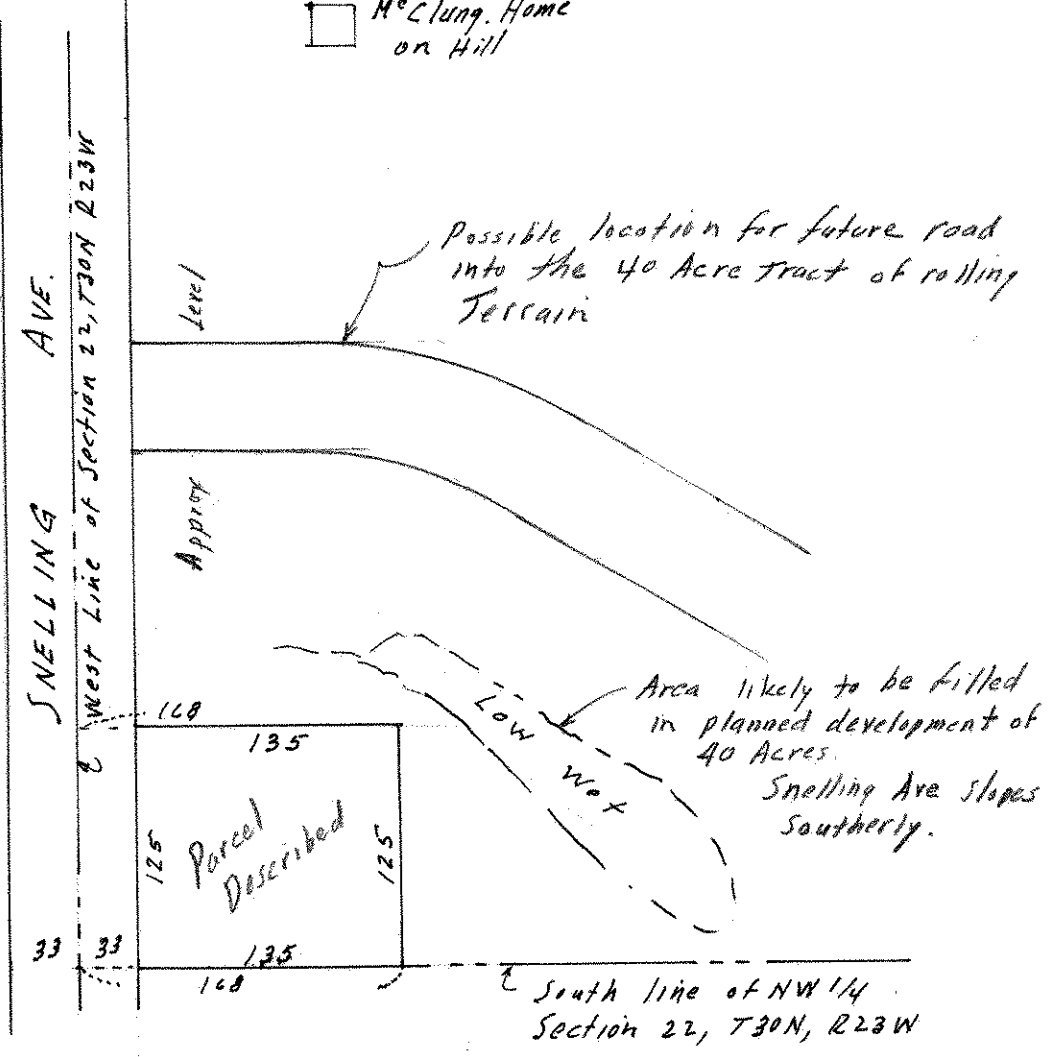 McClung. Home
on Hill
SNELLING AVE.
West Line of Section 22, T30N R23W
Level
Possible location for future road
into the 40 Acre Tract of rolling
Terrain
Approx
Low
Wet
Area likely to be filled
in planned development of
40 Acres.
Snelling Ave slopes
Southerly.
168
135
125
Parcel
Described
125
33
33
135
168
South line of NW 1/4
Section 22, T30N, R23W